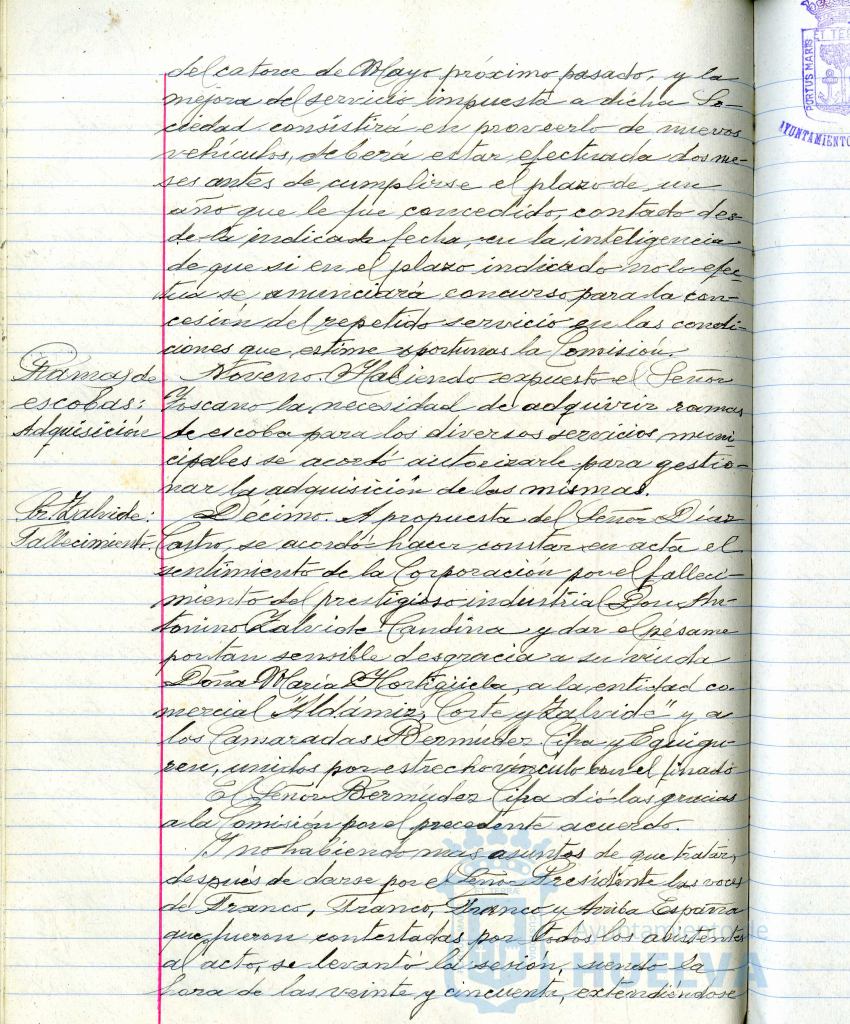 del catorce de Mayo próximo pasado, y la
mejora del servicio impuesta a dicha So-
ciedad consistirá en proveerlo de nuevos
vehículos, deberá estar efectuada dos me-
ses antes de cumplirse el plazo de un
año que le fue concedido, contado des-
de la indicada fecha, en la inteligencia
de que si en el plazo indicado no lo efec-
tua se anunciará concurso para la con-
cesión del repetido servicio en las condi-
ciones que estime oportunas la Comisión.
Ramas de
escobas:
Adquisición
Noveno. Habiendo expuesto el Señor
Toscano la necesidad de adquirir ramas
de escoba para los diversos servicios muni
cipales se acordó autorizarle para gestio-
nar la adquisición de las mismas.
Sr. Zalvide:
Fallecimiento.
Décimo. A propuesta del Señor Díaz
Castro, se acordó hacer constar en acta el
sentimiento de la Corporación por el falleci-
miento del prestigioso industrial Don An-
tonino Zalvide Candina y dar el pésame
por tan sensible desgracia a su viuda
Doña María Hortigüela, a la entidad co-
mercial "Aldamiz, Corte y Zalvide" y a
los Camaradas Bermúdez Cifra y Eguigu-
ren, unidos por estrecho vínculo con el finado
El Señor Bermúdez Cifra dió las gracias
a la Comisión por el precedente acuerdo.
Y no habiendo mas asuntos de que tratar,
después de darse por el Señor Presidente las voces
de Franco, Franco, Franco y Arriba España
que fueron contestadas por todos los asistentes
al acto, se levantó la sesión, siendo la
hora de las veinte y cincuenta, extendiéndose
PORTUS MARIS
ET TER
AYUNTAMIENTO
Ayuntamiento de
HUELVA